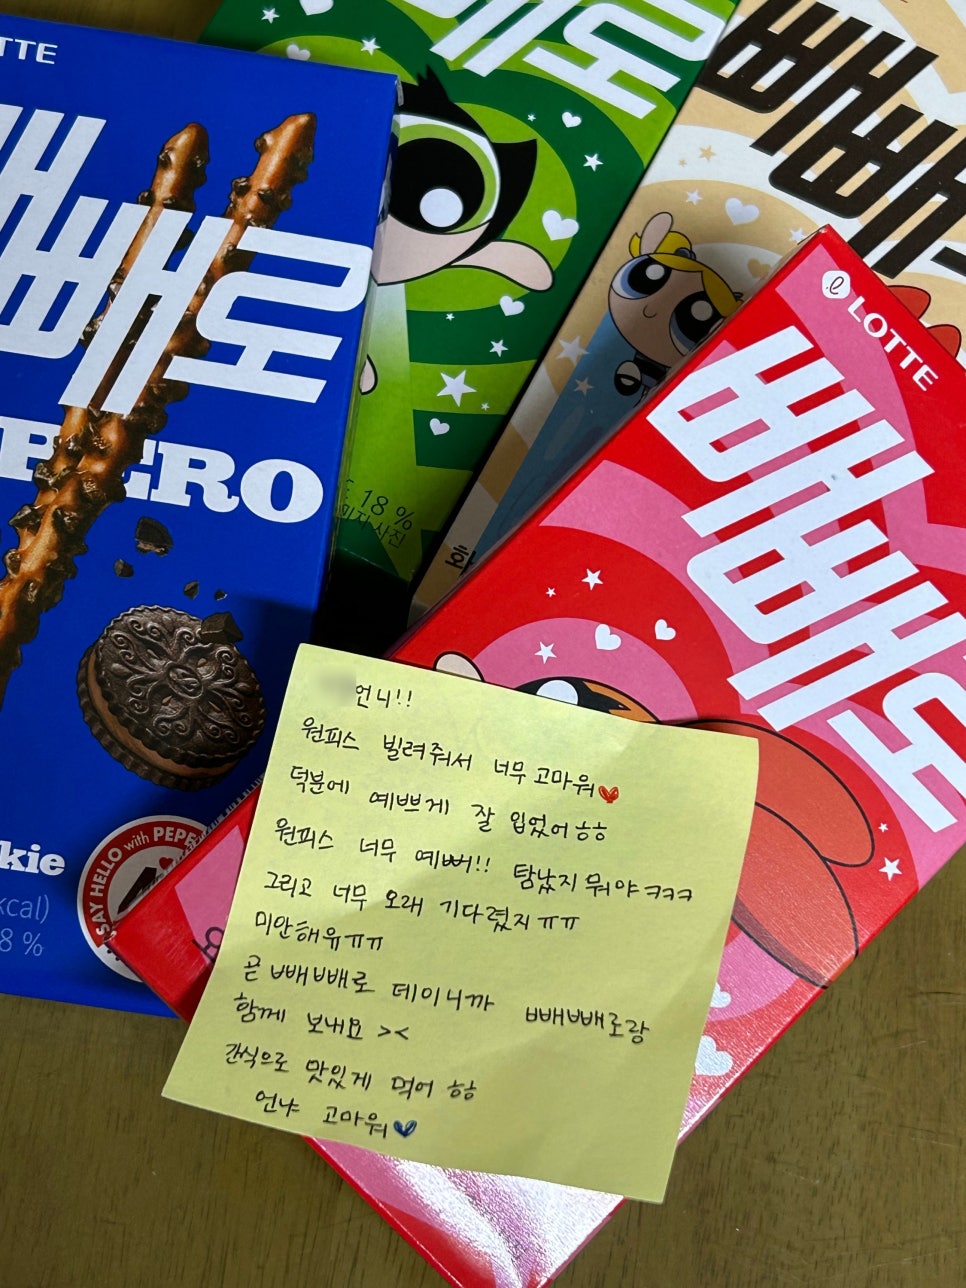 LOTTE
빼빼로
PEPERO
SAY HELLO with PEPE
18 %
LOTTE
빼빼로
언니!!
원피스 빌려줘서 너무 고마워♥
덕분에 예쁘게 잘 입었어ㅎㅎ
원피스 너무 예뻐!! 탐났지 뭐야ㅋㅋㅋ
그리고 너무 오래 기다렸지ㅠㅠ
미안해유ㅠㅠ
곧 빼빼로 데이니까 빼빼로랑
함께 보내요 ><
간식으로 맛있게 먹어 ㅎㅎ
언냐 고마워♥